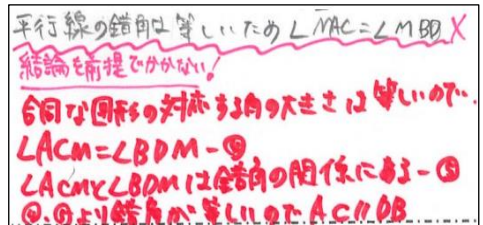 平行線の錯角は等しいため∠MAC=∠MBD X
結論を前提でかかない!
合同な図形の対応する角の大きさは等しいので、
∠ACM=∠BDM-④
∠ACMと∠BDMは錯角の関係にある-⑤
④、⑤より錯角が等しいのでAC//DB